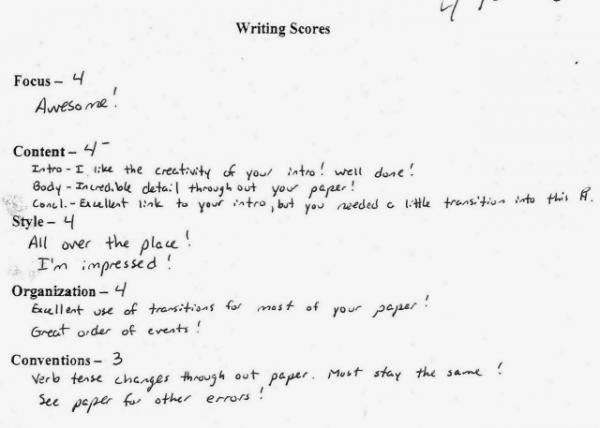 4
Writing Scores
Focus – 4
Awesome!
Content – 4-
Intro - I like the creativity of your intro! well done!
Body - Incredible detail through out your paper!
Concl. - Excellent link to your intro, but you needed a little transition into this ¶.
Style – 4
All over the place!
I'm impressed!
Organization – 4
Excellent use of transitions for most of your paper!
Great order of events!
Conventions – 3
Verb tense changes through out paper. Must stay the same!
See paper for other errors!